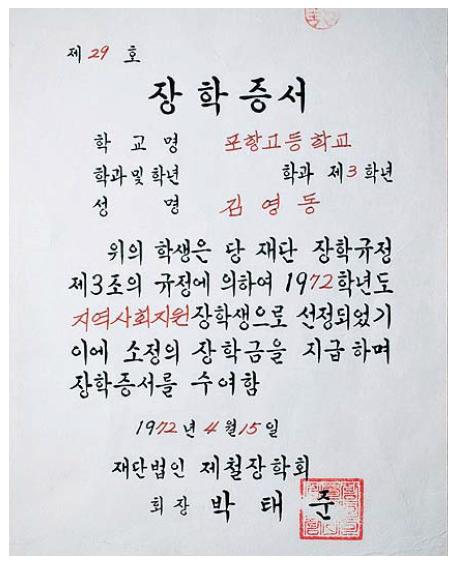 제 29 호
장학증서
학교명 포항고등학교
학과및학년 학과 제3학년
성명 김영동
위의 학생은 당 재단 장학규정
제3조의 규정에 의하여 1972학년도
지역사회지원장학생으로 선정되었기
이에 소정의 장학금을 지급하며
장학증서를 수여함
1972년 4월 15일
재단법인 제철장학회
회장 박태준